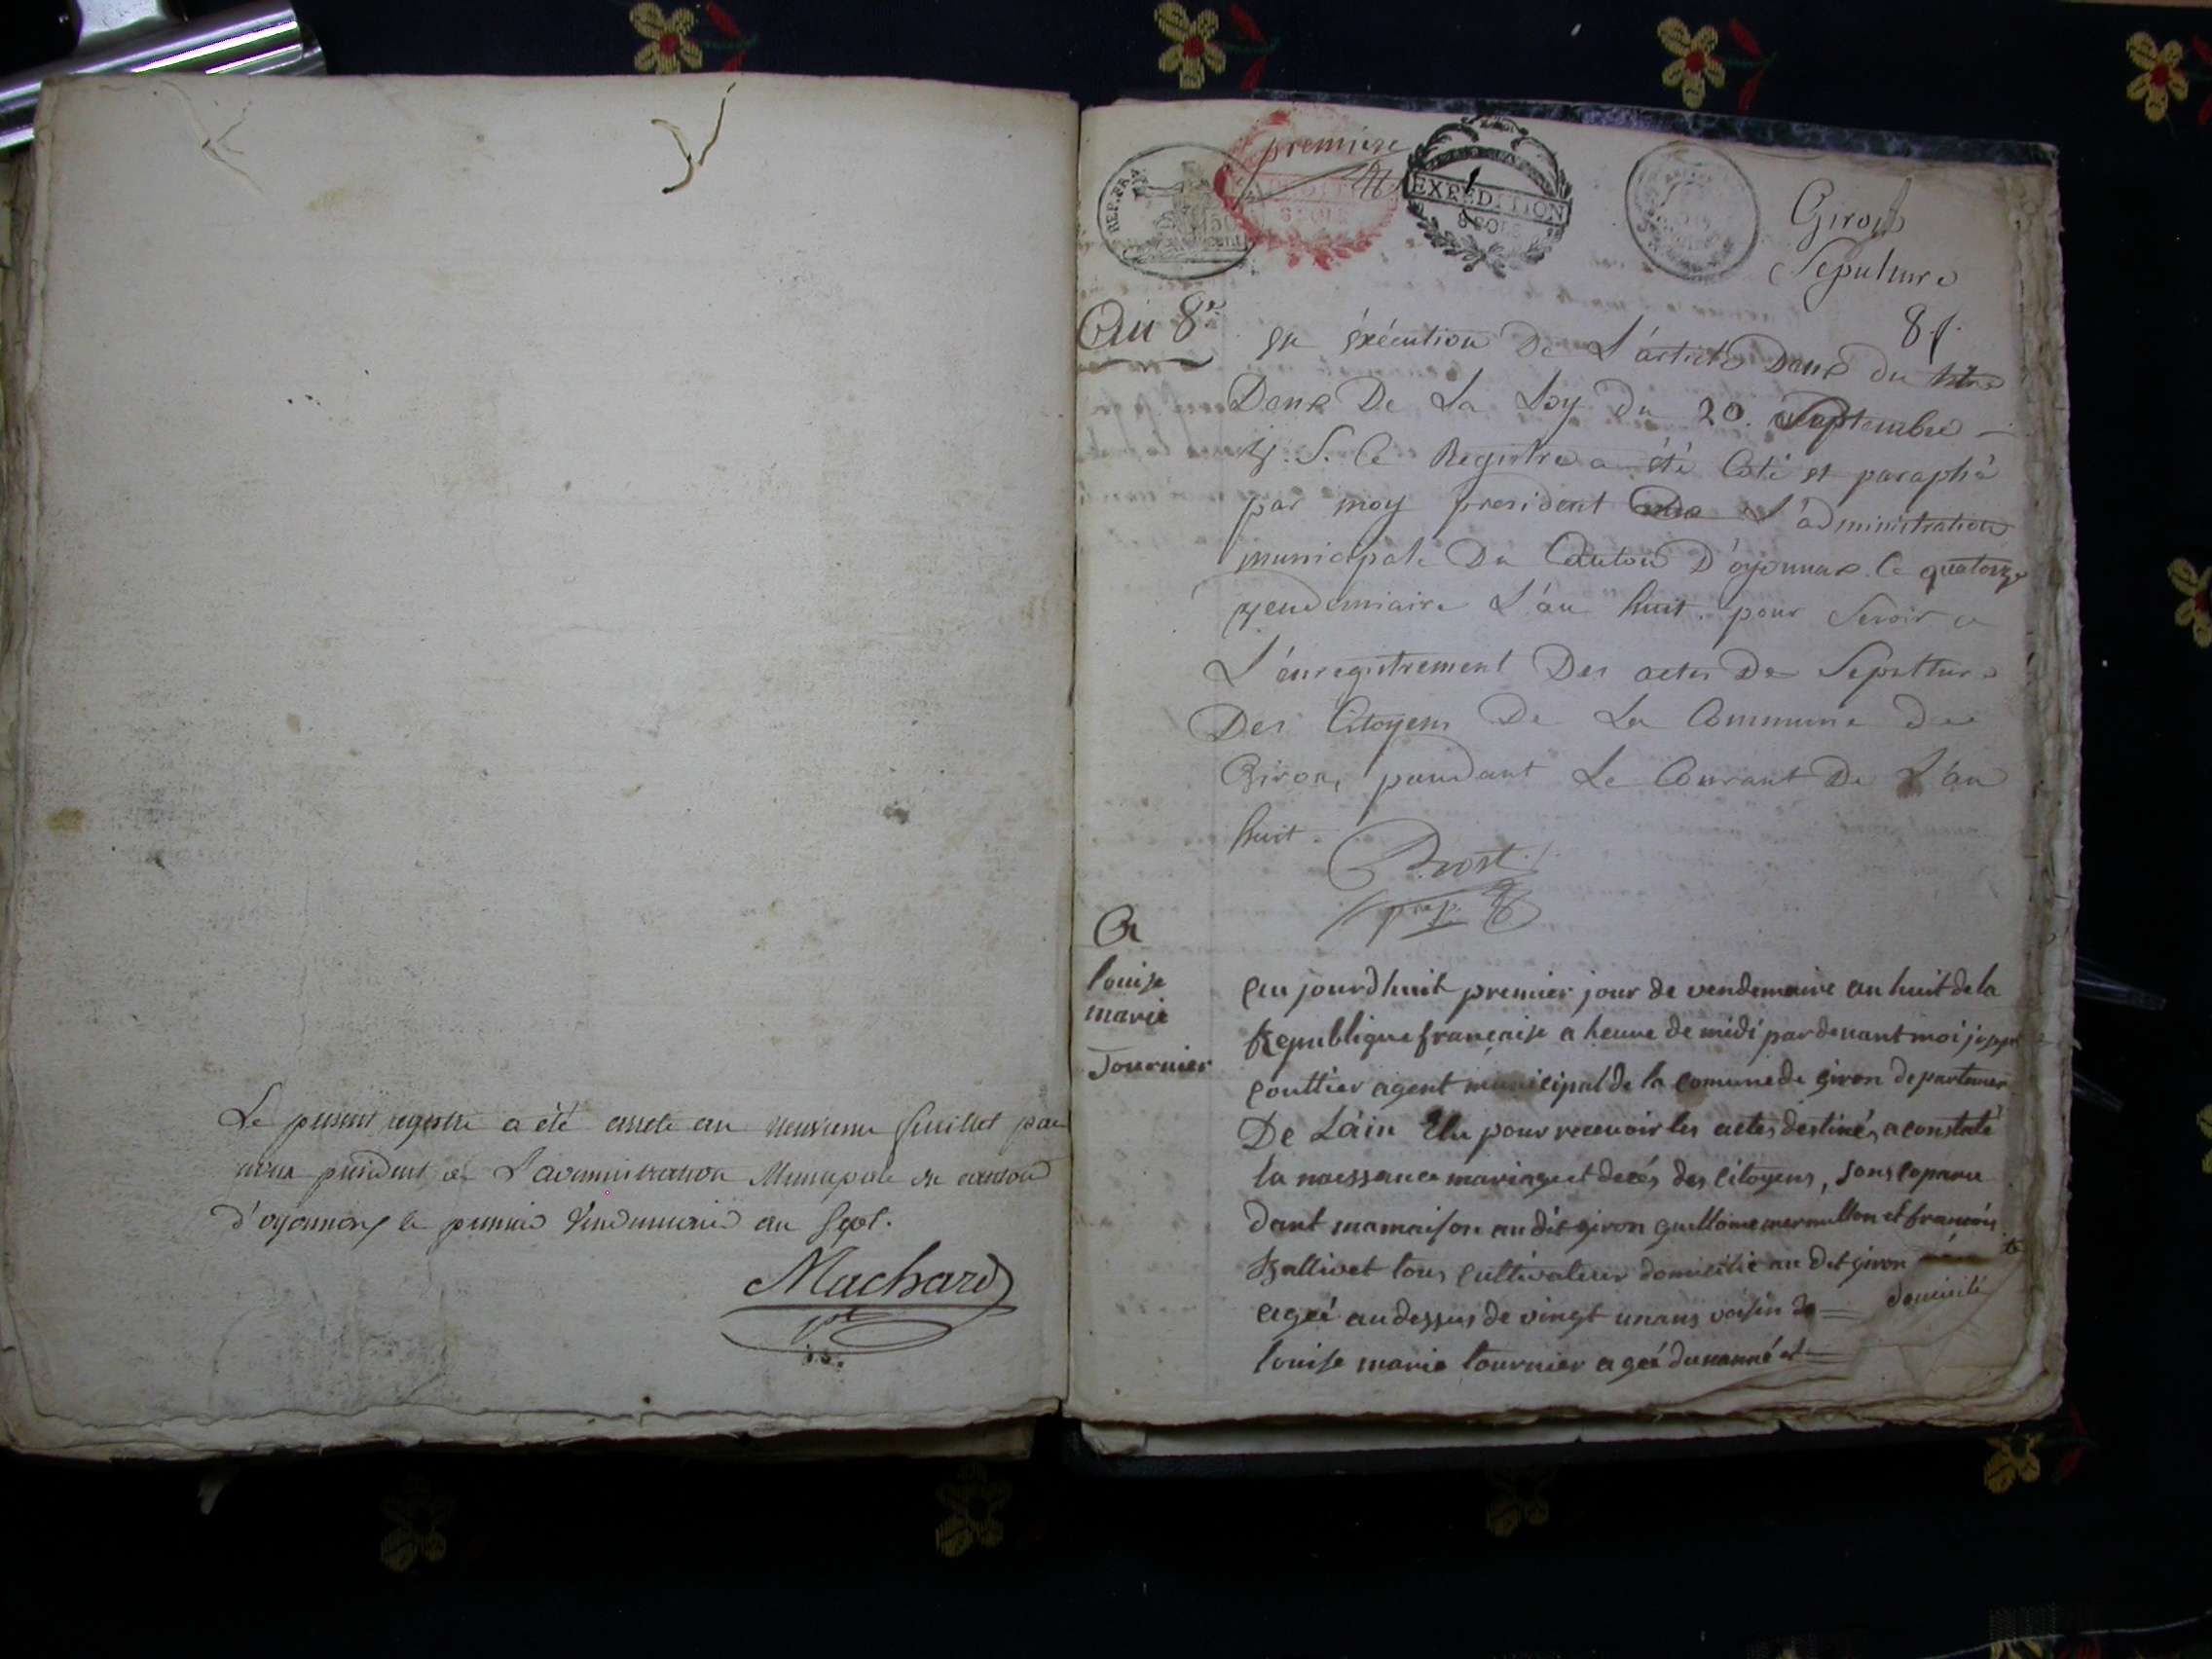 Le present registre a été arreté au neuvieme feuillet par
nous president de L'administration Municipale du canton
d'oyonnax le premier Vendemiaire an sept.
Machard
pt
premiere
REP. FRA
50
CENT
EXPEDITION
8 SOLS
Giron
Sepulture
An 8e
8 f.
En éxécution De L'article Deux du titre
Deux De La Loy du 20. Septembre
V. S. Ce Registre a été Coté et paraphé
par moy president de L'administration
municipale Du Canton D'oyonnax le quatorze
vendemiaire L'an huit. pour servir a
L'enregistrement Des actes De Sepulture
Des Citoyens De La Commune de
Giron, pendant Le Courant De L'an
huit.
Prost
louise
marie
Tournier
aujourdhuit premier jour de vendemaire an huit de la
Republique francaise a heure de midi par devant moi joseph
couttier agent municipal de la comune de giron departemen
De Lain Elu pour recevoir les actes destinés a constaté
la naissance mariage et decés des citoyens, sons comparu
dant ma maison au dit giron guillaume mermillon et francois
Ballivet tous cultivateur domicilié au dit giron
agéé au dessus de vingt un ans voisin de domicile
louise marie tournier ageé dunanné et